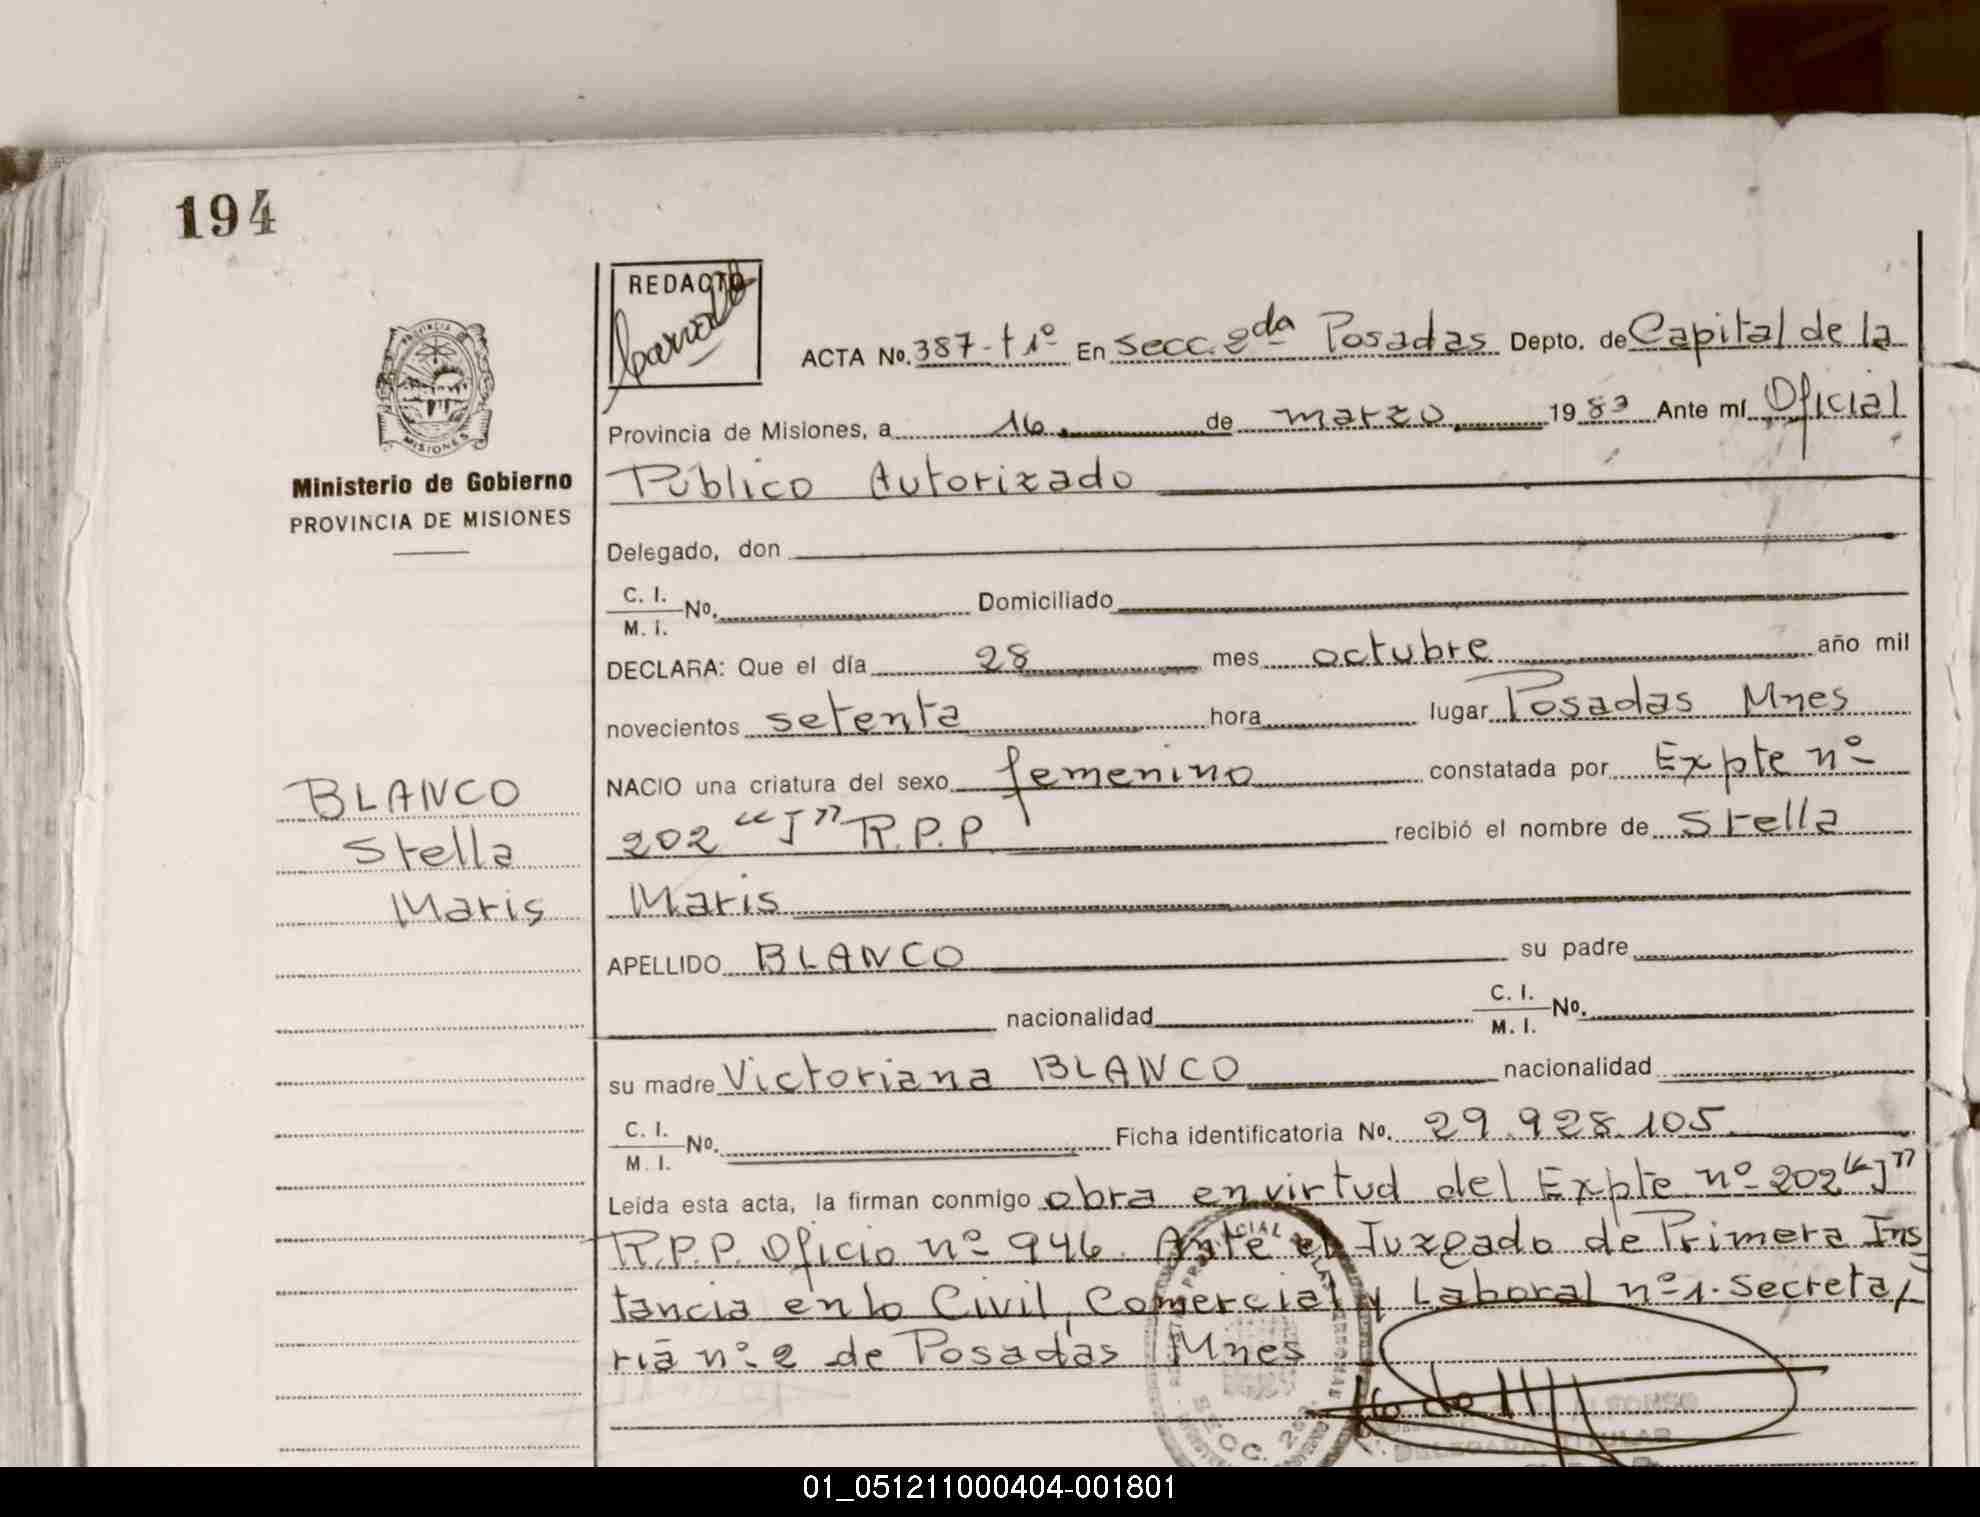 194
REDACTO
ACTA No. 387-t 1º En Secc. 2da Posadas Depto. de Capital de la
Provincia de Misiones, a 16 de marzo 1983 Ante mí Oficial
Ministerio de Gobierno
PROVINCIA DE MISIONES
Público Autorizado
Delegado, don
C. I.
M. I. No. Domiciliado
DECLARA: Que el día 28 mes octubre año mil
novecientos setenta hora lugar Posadas Mnes
NACIO una criatura del sexo femenino constatada por Expte nº
202 "J" R.P.P recibió el nombre de Stella
Maris
BLANCO
Stella
Maris
APELLIDO BLANCO su padre
nacionalidad C. I.
M. I. No.
su madre Victoriana BLANCO nacionalidad
C. I.
M. I. No. Ficha identificatoria No. 29.928.105.
Leída esta acta, la firman conmigo obra en virtud del Expte nº 202 "J"
R.P.P. Oficio nº 946. Ante el Juzgado de Primera Ins
tancia en lo Civil, Comercial y Laboral nº 1. Secreta/
ria nº 2 de Posadas Mnes
01_051211000404-001801